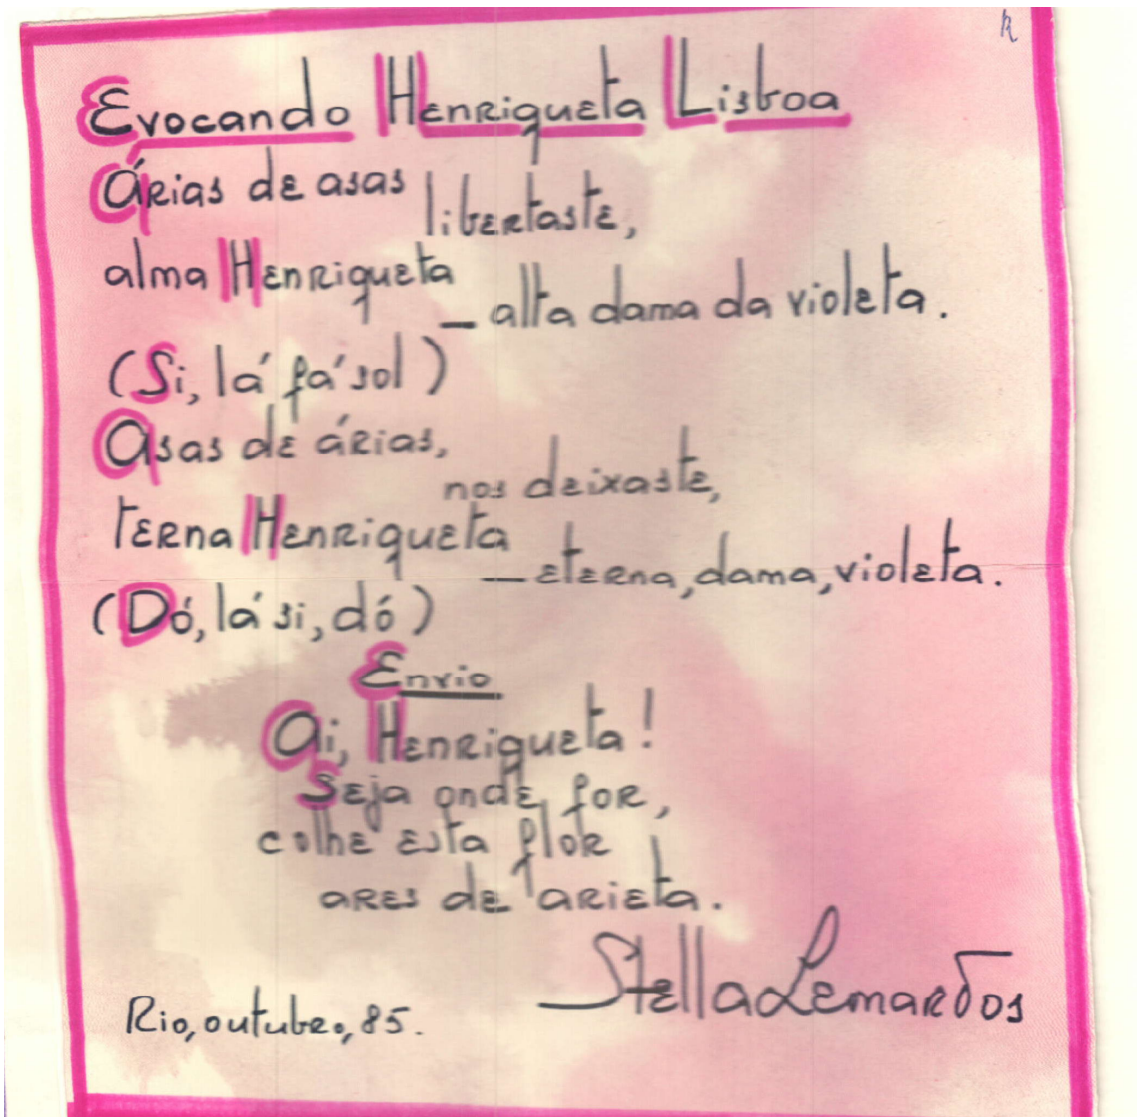 Evocando Henriqueta Lisboa
Árias de asas
libertaste,
alma Henriqueta
— alta dama da violeta.
(Si, lá fá sol)
Asas de árias,
nos deixaste,
terna Henriqueta
— eterna, dama, violeta.
(Dó, lá si, dó)
Envio
Ai, Henriqueta!
Seja onde for,
colhe esta flor
ares de arieta.
Rio, outubro, 85.